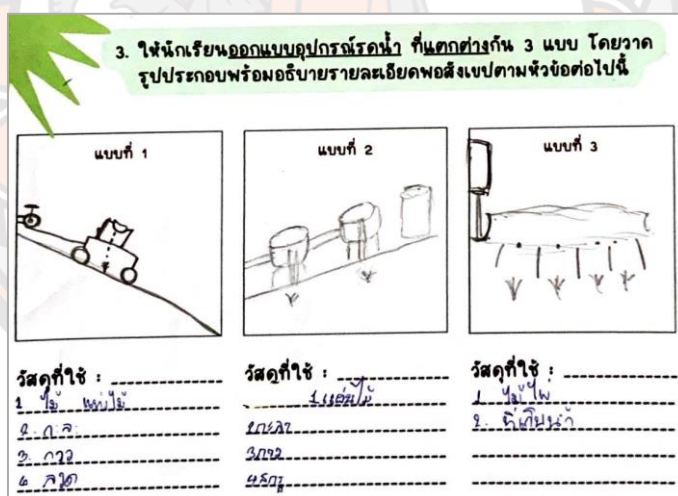 3. ให้นักเรียนออกแบบอุปกรณ์รดน้ำ ที่แตกต่างกัน 3 แบบ โดยวาด
รูปประกอบพร้อมอธิบายรายละเอียดพอสังเขปตามหัวข้อต่อไปนี้
แบบที่ 1
แบบที่ 2
แบบที่ 3
วัสดุที่ใช้ :
1 ไม้
2. กะลา
3. กาว
4 ลวด
วัสดุที่ใช้ :
1.แผ่นไม้
2กะลา
3กาว
4สกรู
วัสดุที่ใช้ :
1 ไม้ไผ่
2. ที่เก็บน้ำ